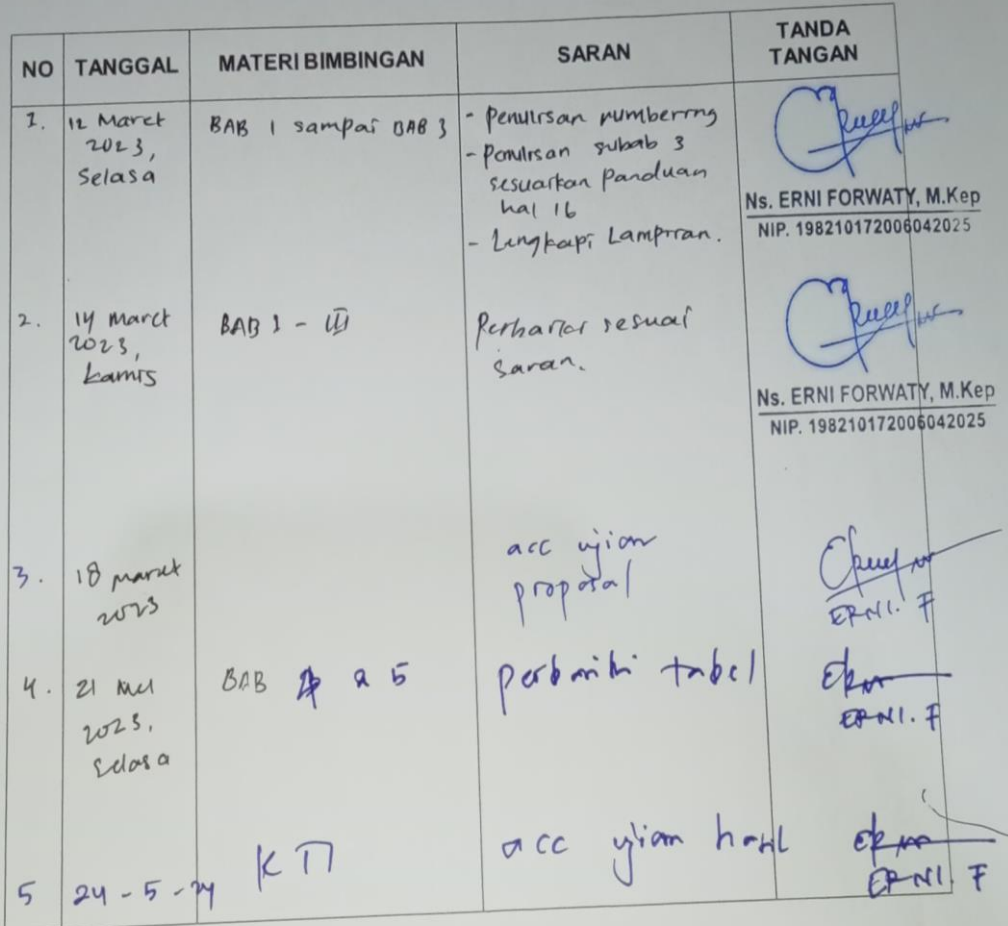 NO TANGGAL MATERI BIMBINGAN SARAN TANDA TANGAN
1. 12 Maret 2023, Selasa
BAB 1 sampai BAB 3
- Penulisan numbering
- Penulisan subab 3
sesuaikan Panduan
hal 16
- Lengkapi Lampiran.
Ns. ERNI FORWATY, M.Kep
NIP. 198210172006042025
2. 14 Maret 2023, Kamis
BAB 1 - III
Perbaiki sesuai
saran.
Ns. ERNI FORWATY, M.Kep
NIP. 198210172006042025
3. 18 maret 2023
acc ujian
proposal
ERNI. F
4. 21 Mei 2023, Selasa
BAB 4 & 5
perbaiki tabel
ERNI. F
5 24-5-24
KTI
acc ujian hasil
ERNI. F